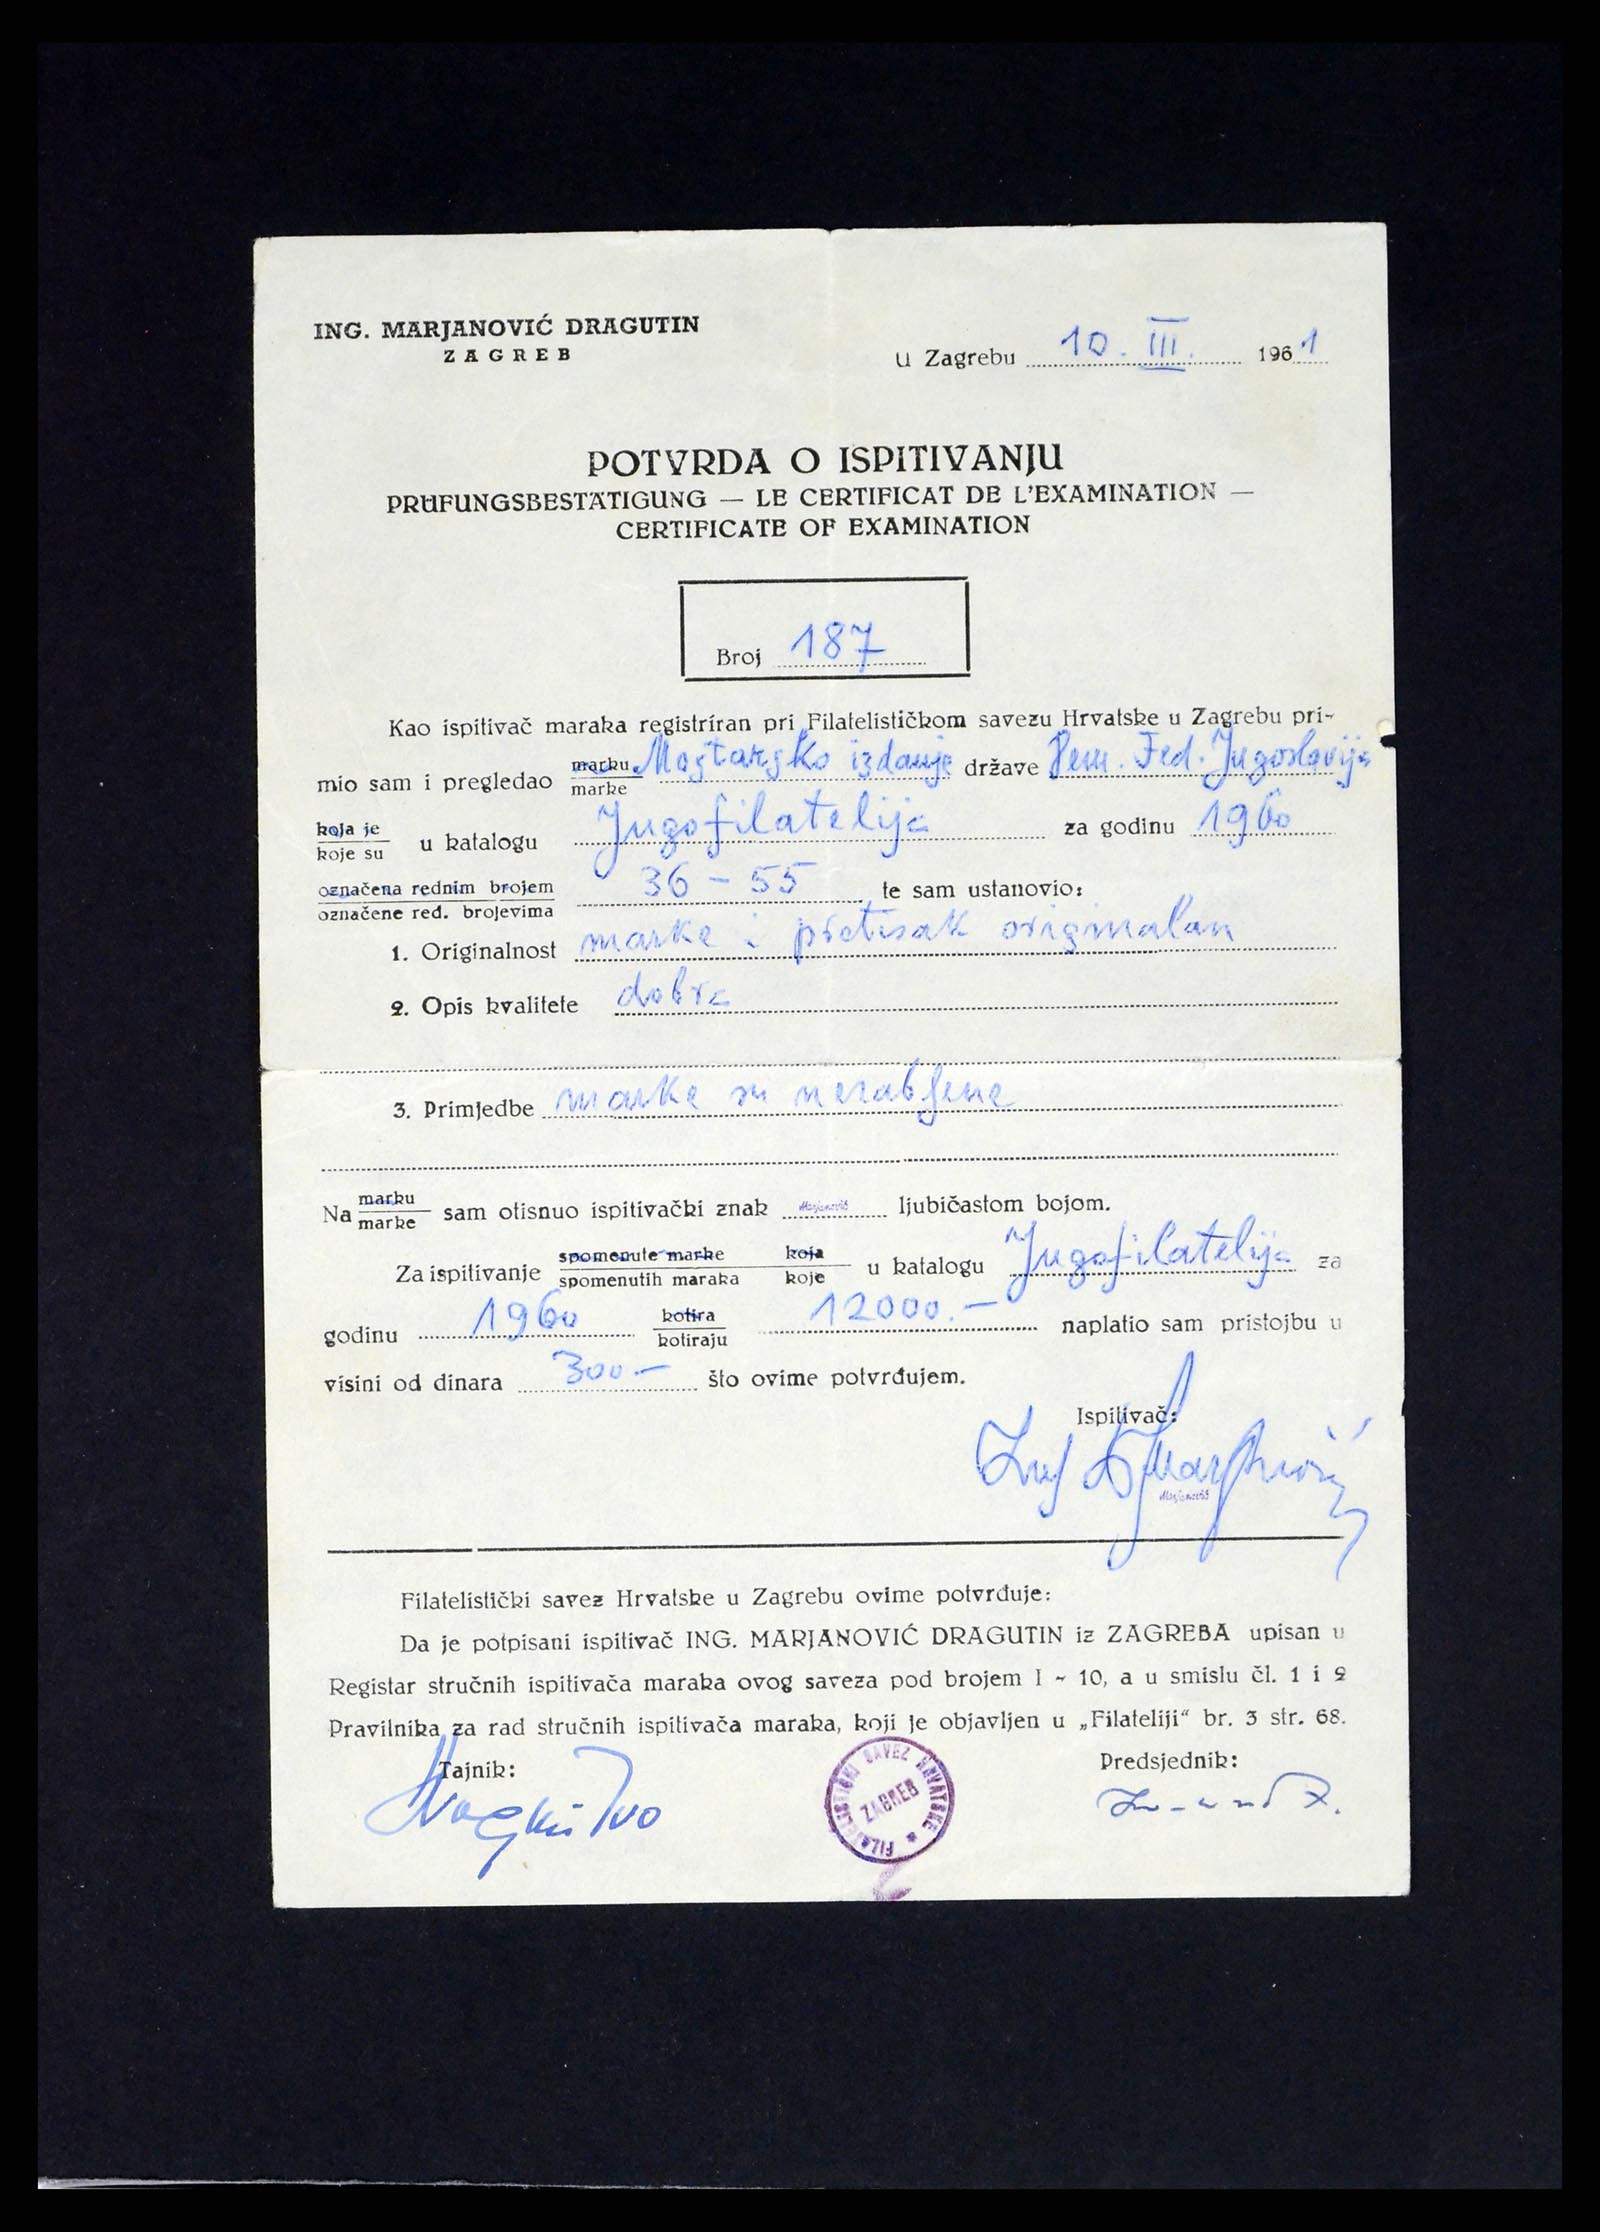 ING. MARJANOVIĆ DRAGUTIN
ZAGREB
U Zagrebu 10. III. 1961
POTVRDA O ISPITIVANJU
PRÜFUNGSBESTÄTIGUNG — LE CERTIFICAT DE L'EXAMINATION —
CERTIFICATE OF EXAMINATION
Broj 187
Kao ispitivač maraka registriran pri Filatelističkom savezu Hrvatske u Zagrebu pri-
mio sam i pregledao marku/marke Mostarsko izdanje države Dem. Fed. Jugoslavija
koja je/koje su u katalogu Jugofilatelija za godinu 1960
označena rednim brojem/označene red. brojevima 36 - 55 te sam ustanovio:
1. Originalnost marke i pretisak originalan
2. Opis kvalitete dobra
3. Primjedbe marke su nerabljene
Na marku/marke sam otisnuo ispitivački znak Marjanović ljubičastom bojom.
Za ispitivanje spomenute marke/spomenutih maraka koja/koje u katalogu Jugofilatelija za
godinu 1960 kotira/kotiraju 12000.— naplatio sam pristojbu u
visini od dinara 300.— što ovime potvrđujem.
Ispitivač:
Marjanović
Filatelistički savez Hrvatske u Zagrebu ovime potvrđuje:
Da je potpisani ispitivač ING. MARJANOVIĆ DRAGUTIN iz ZAGREBA upisan u
Registar stručnih ispitivača maraka ovog saveza pod brojem I - 10, a u smislu čl. 1 i 2
Pravilnika za rad stručnih ispitivača maraka, koji je objavljen u „Filateliji“ br. 3 str. 68.
Tajnik:
Predsjednik:
FILATELISTIČKI SAVEZ HRVATSKE
ZAGREB